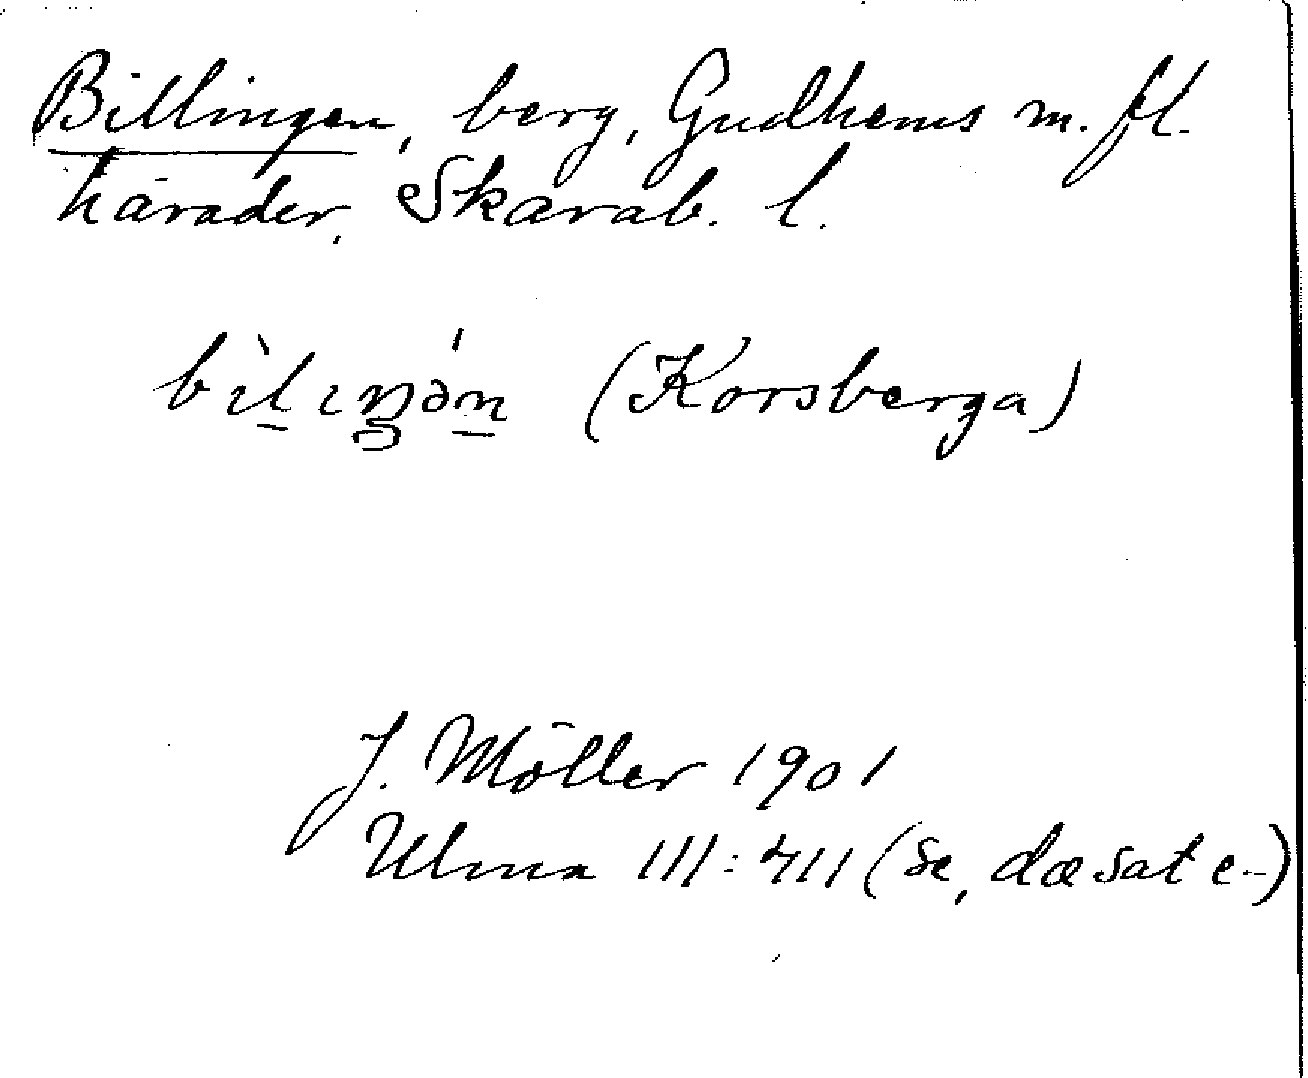 Billingen, berg, Gudhems m. fl.
härader, Skarab. l.
bìlıŋə́n (Korsberga)
J. Möller 1901
Ulma 111:411 (se, dæsat e-)